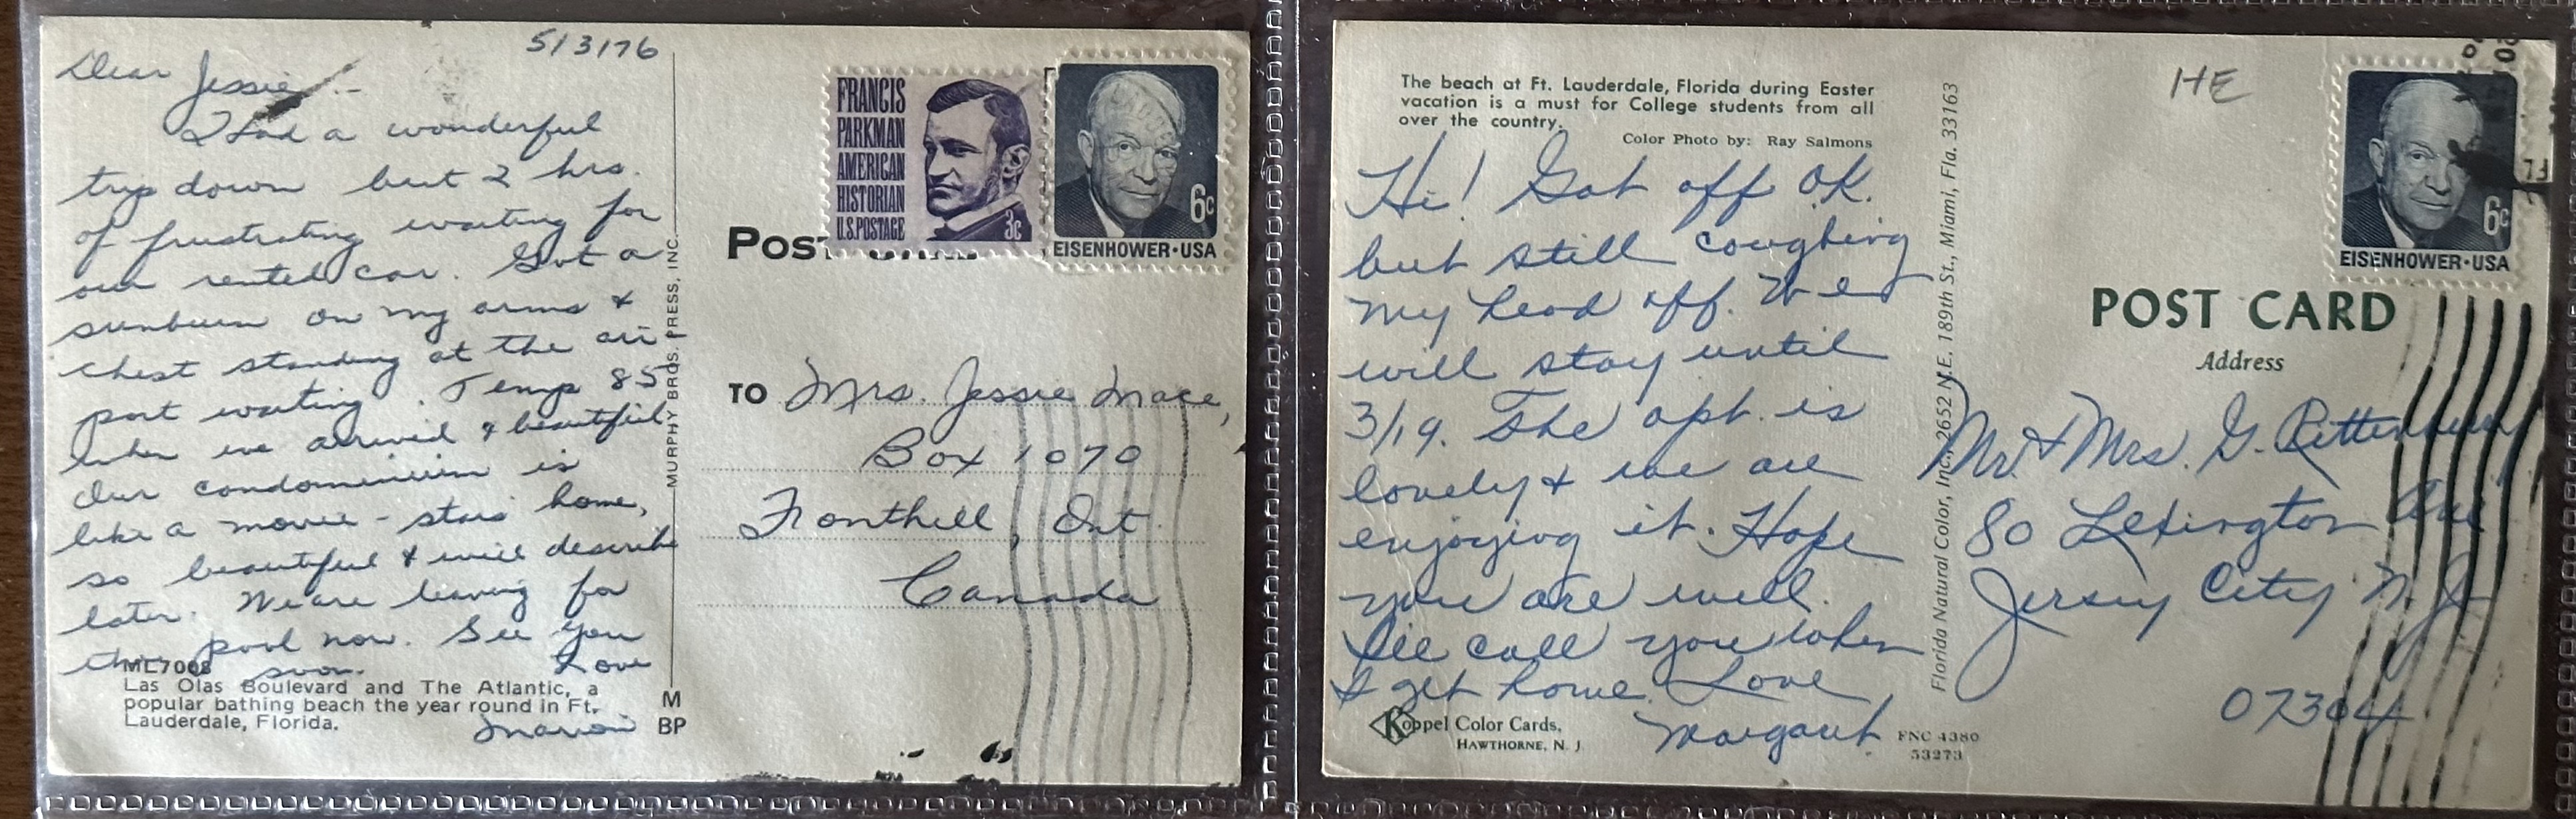 5/3/76
Dear Jessie -
I had a wonderful
trip down but 2 hrs.
of frustrating waiting for
our rented car. Got a
sunburn on my arms &
chest standing at the air
port waiting. Temp 85
when we arrived & beautiful
Our condominium is
like a movie-stars home,
so beautiful & will describe
later. We are leaving for
the pool now. See you
soon. Love
Marion
ML7008
Las Olas Boulevard and The Atlantic, a
popular bathing beach the year round in Ft.
Lauderdale, Florida.
MURPHY BROS. PRESS, INC.
M
BP
FRANCIS
PARKMAN
AMERICAN
HISTORIAN
U.S. POSTAGE
3c
6c
EISENHOWER·USA
POST
TO Mrs. Jessie Mace,
Box 1070
Fonthill, Ont.
Canada
The beach at Ft. Lauderdale, Florida during Easter
vacation is a must for College students from all
over the country.
Color Photo by: Ray Salmons
Hi! Got off OK.
but still coughing
my head off. We
will stay until
3/19. The apt. is
lovely & we are
enjoying it. Hope
you are well.
I'll call you when
I get home. Love
Margaret
Koppel Color Cards,
HAWTHORNE, N. J.
FNC 4380
53273
Florida Natural Color, Inc., 2652 N.E. 189th St., Miami, Fla. 33163
HE
FL
6c
EISENHOWER·USA
POST CARD
Address
Mr. & Mrs. G. Rittenhouse
80 Lexington Ave
Jersey City N.J.
07304